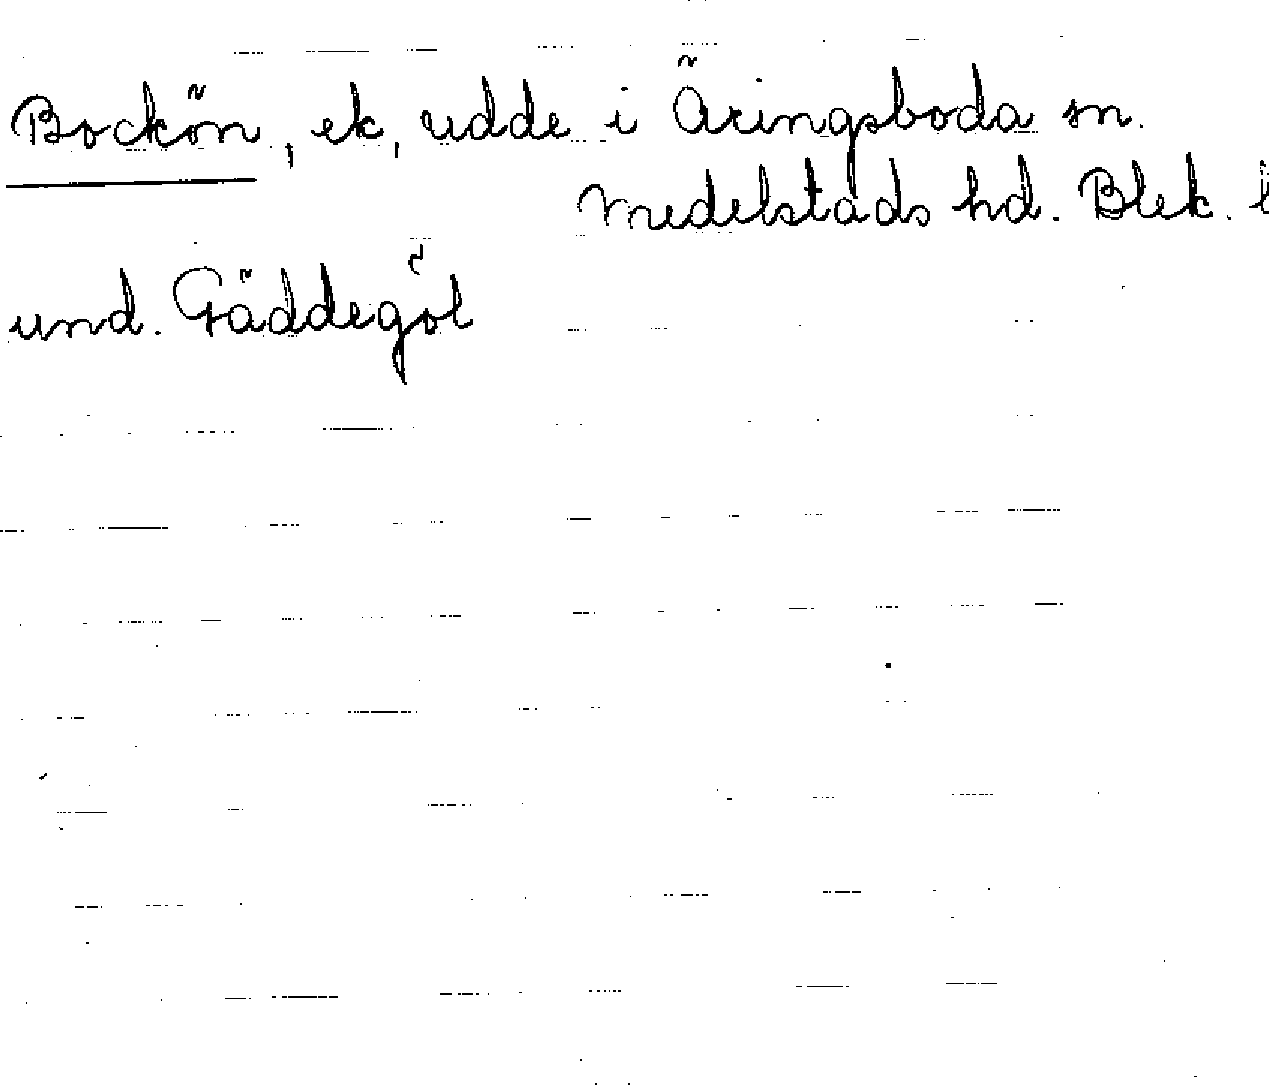 Bockön, ek, udde i Äringsboda sn.
Medelstads hd. Blek. l
und. Gäddegöl